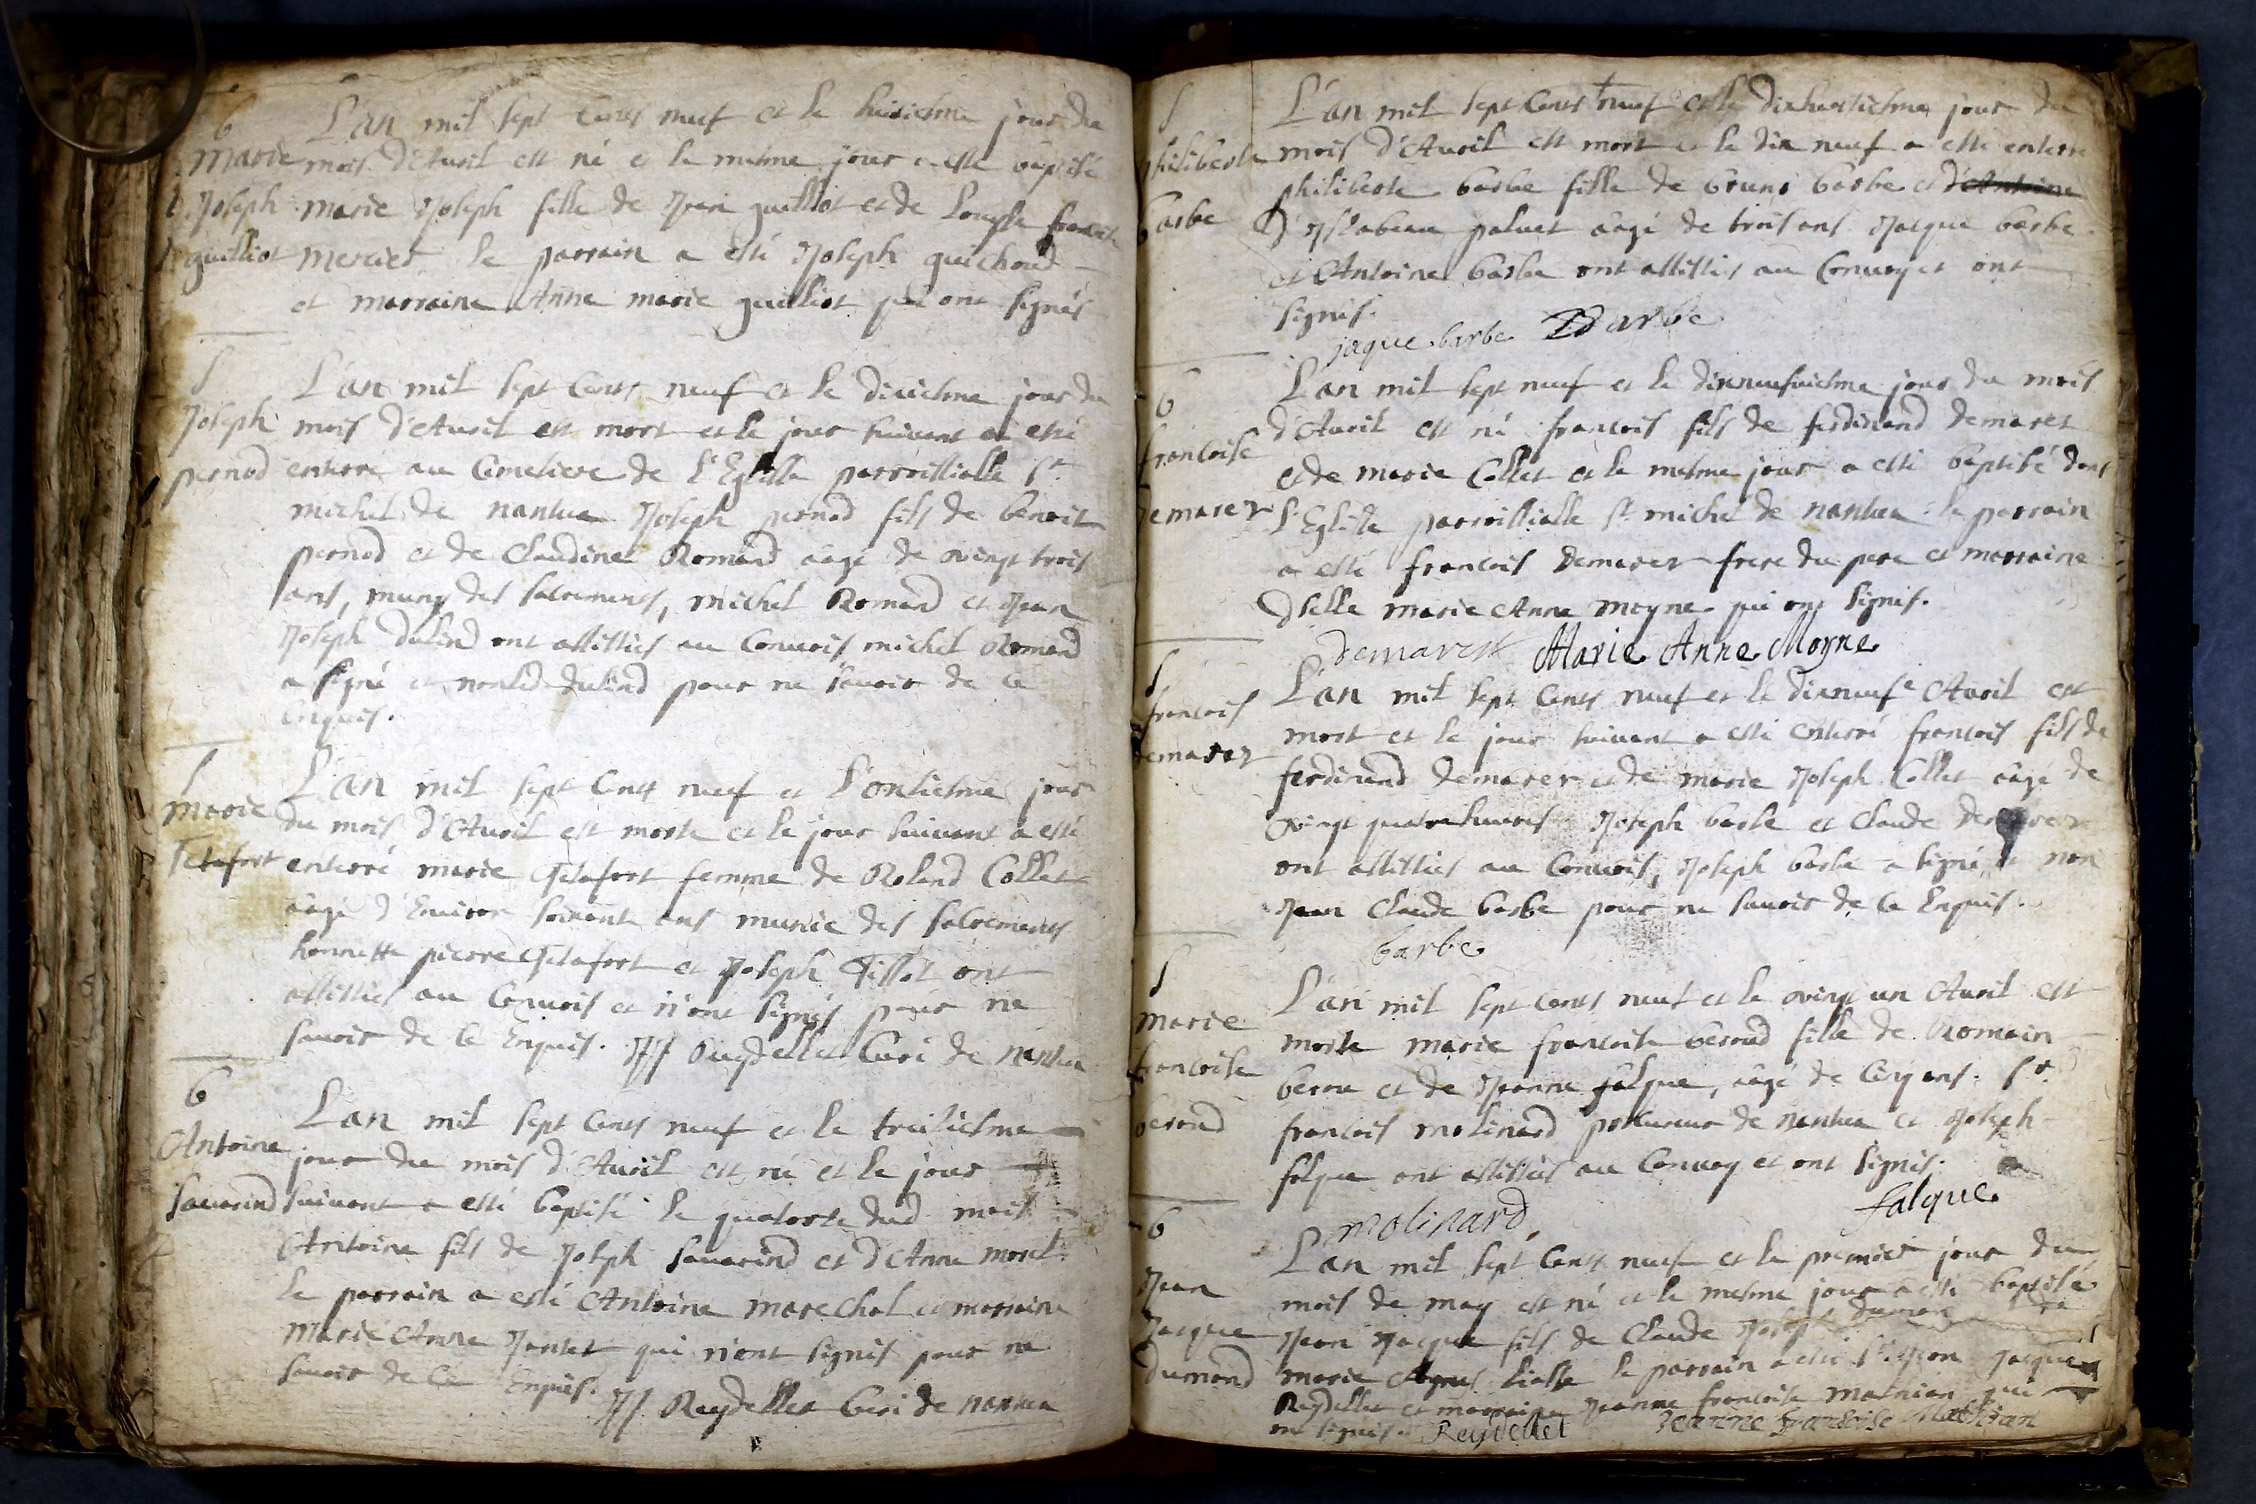 B
Marie
Joseph
guilliot
L'an mil sept cents neuf et le huictiesme jour du
mois d'Auril est né et le mesme jour a esté baptisé
marie Joseph fille de Jean guilliot et de Louyse francoise
mercier le parrain a esté Joseph guichoud
et marraine Anne marie guilliot qui ont signés
S
Joseph
pernod
L'an mil sept cents neuf et le dixiesme jour du
mois d'Auril est mort et le jour suiuant a esté
enterré au Cimetiere de l'Eglise parroissialle St
michel de nantua Joseph pernod fils de benoit
pernod et de Claudine Romand aagé de vingt trois
ans, muny des sacrements, michel Romand et Jean
Joseph dulind ont assistés au Conuois michel Romand
a signé et non led dulind pour ne sauoir de ce
enquis.
S
marie
Tetafort
L'an mil sept cents neuf et l'onziesme jour
du mois d'Auril est morte et le jour suiuant a esté
enterré marie Tetafort femme de Roland Collet
aagé d'Enuiron soixante ans munie des sacrements
honnette pierre Tetafort et Joseph Tissot ont
assistés au Conuois et n'ont signés pour ne
sauoir de ce Enquis. JJ Reydellet Curé de nantua
B
Antoine
sauarind
L'an mil sept cents neuf et le treiziesme
jour du mois d'Auril est né et le jour
suiuant a esté baptisé le quatorze dud mois
Antoine fils de Joseph sauarind et d'Anne morel
le parrain a esté Antoine marechal et marraine
Marie Anne Jantet qui n'ont signés pour ne
sauoir de ce Enquis. JJ Reydellet Curé de nantua
S
philiberte
barbe
L'an mil sept cents neuf et le dixhuictiesme jour du
mois d'Auril est mort et le dix neuf a esté enterré
philiberte barbe fille de bruno barbe et d'Antoine
d'Ysabeau paluet aagé de trois ans Jacque barbe
et Antoine barbe ont assistés au Conuoy et ont
signés.
jaque barbe Barbe
B
francoise
Demarer
L'an mil sept neuf et le dixneufuiesme jour du mois
d'Auril est né francois fils de ferdinand demarer
et de marie Collet et le mesme jour a esté baptisé dans
l'Eglise parroissialle St michel de nantua le parrain
a esté francois Demarer frere du pere et marraine
Dlelle marie Anne moyne qui ont signés.
demarest Marie Anne Moyne
S
francois
demarer
L'an mil sept cents neuf et le dixneufe Auril est
mort et le jour suiuant a esté enterré francois fils de
ferdinand demarer et de marie Joseph Collet aagé de
vingt quatre heures Joseph barbe et Claude
ont assistés au Conuois, Joseph barbe a signé et non
Jean Claude barbe pour ne sauoir de ce Enquis.
barbe
S
marie
francoise
beroud
L'an mil sept cents neuf et le vingt un Auril est
morte marie francoise beroud fille de Romain
berou et de Jeanne falque, aagé de Cinq ans. Sr.
francois molinard procureur de nantua et Joseph
falque ont assistés au Conuoy et ont signés.
molinard falque
B
Jean
Jacque
Dumond
L'an mil sept cents neuf et le premier jour du
mois de may est né et le mesme jour a esté baptisé
Jean Jacque fils de Claude Joseph dumon et de
marie Agnes liasse le parrain a esté Sr Jean Jacque
Reydellet et marraine Jeanne francoise mathian qui
ont signés. Reydellet Jeanne francoise Mathian